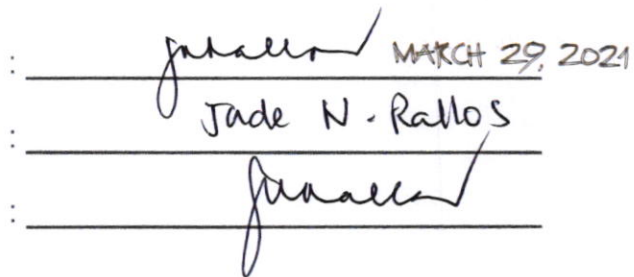 : MARCH 29, 2021
: Jade N. Rallos
: